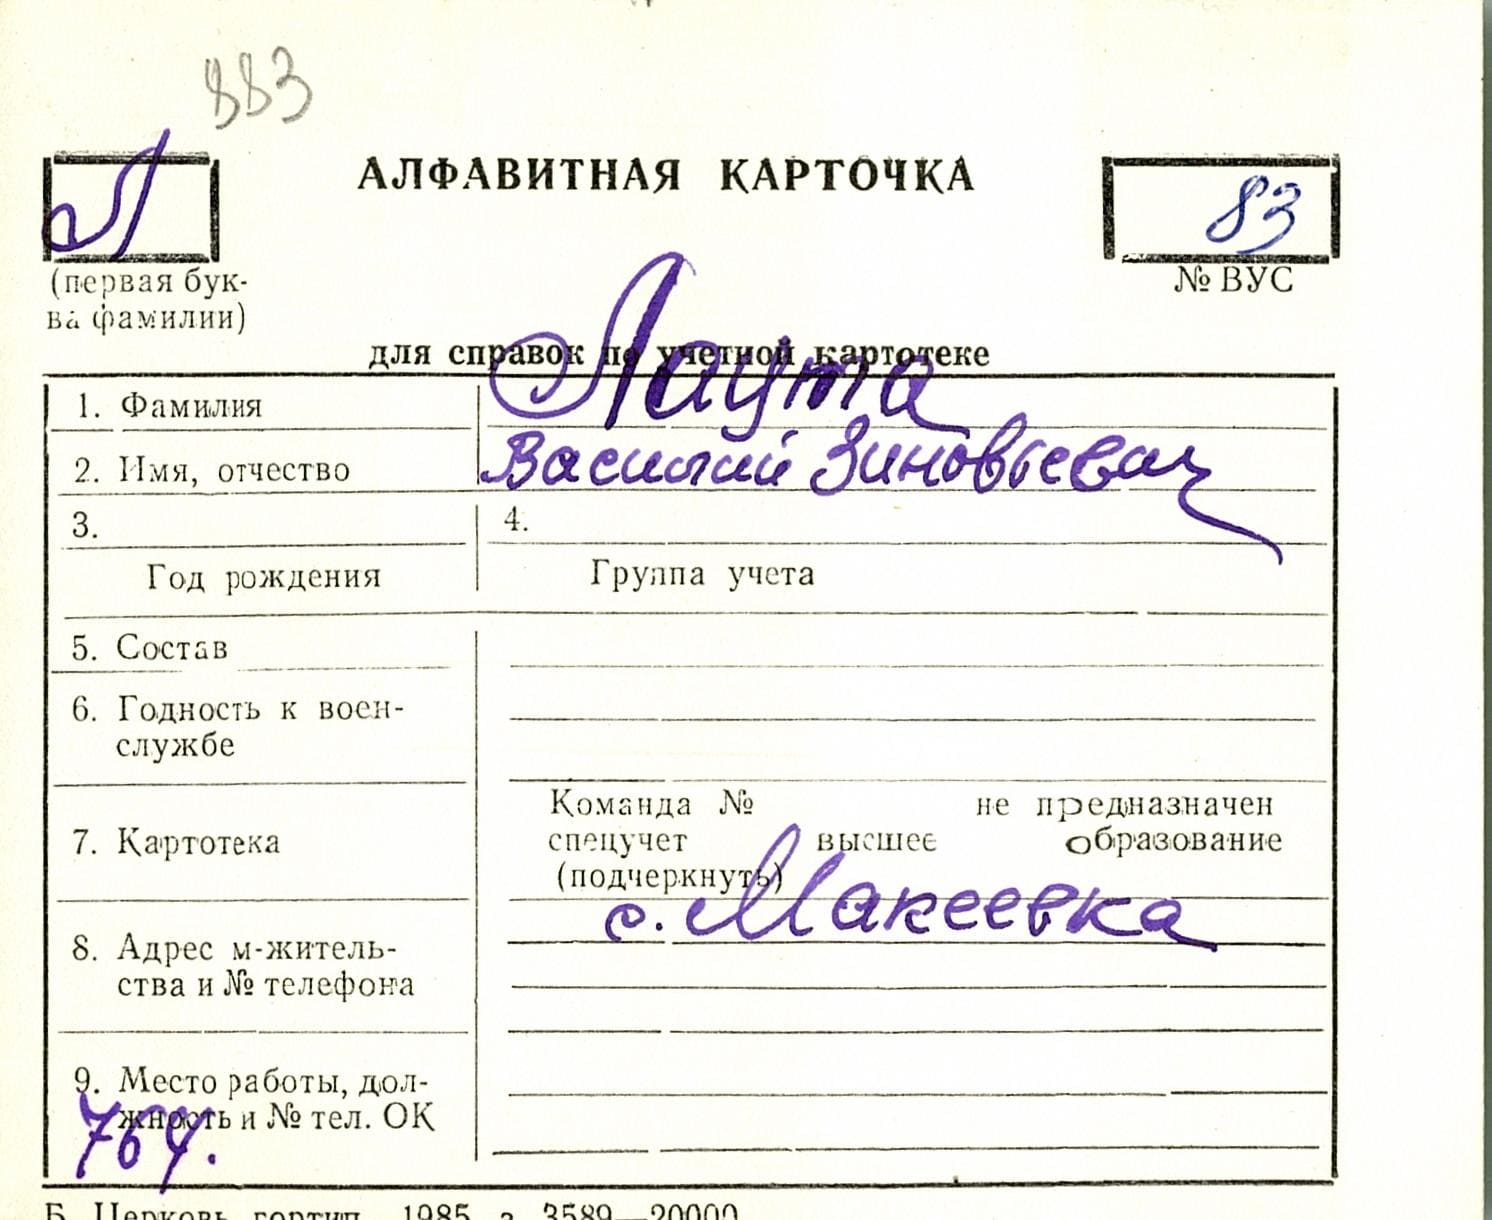 883
Л
АЛФАВИТНАЯ КАРТОЧКА
83
(первая бук-
ва фамилии)
№ ВУС
для справок по учетной картотеке
1. Фамилия Лаута
2. Имя, отчество Василий Зиновьевич
3. 4.
Год рождения Группа учета
5. Состав
6. Годность к воен-
службе
Команда № не предназначен
7. Картотека спецучет высшее образование
(подчеркнуть)
с. Макеевка
8. Адрес м-житель-
ства и № телефона
9. Место работы, дол-
жность и № тел. ОК
764.
Б. Церковь, гортип. 1985 з. 3589—20000